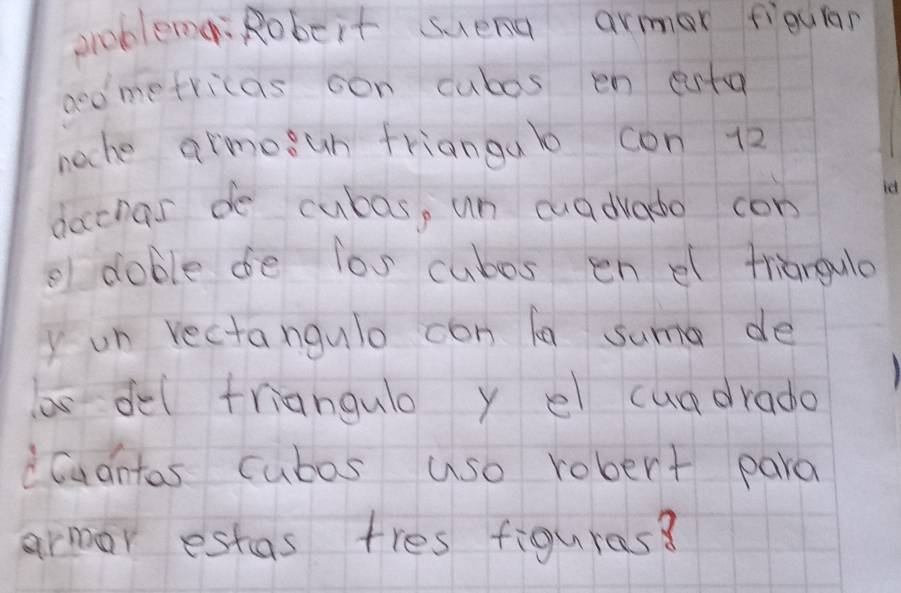 problema: Robert suena armar figuras
geometricas con cubos en esta
noche armo: un triangulo con 12
docenas de cubos, un cuadrado con
el doble de los cubos en el triangulo
y un rectangulo con la suma de
los del triangulo y el cuadrado
¿Cuántos cubos uso robert para
armar estas tres figuras?